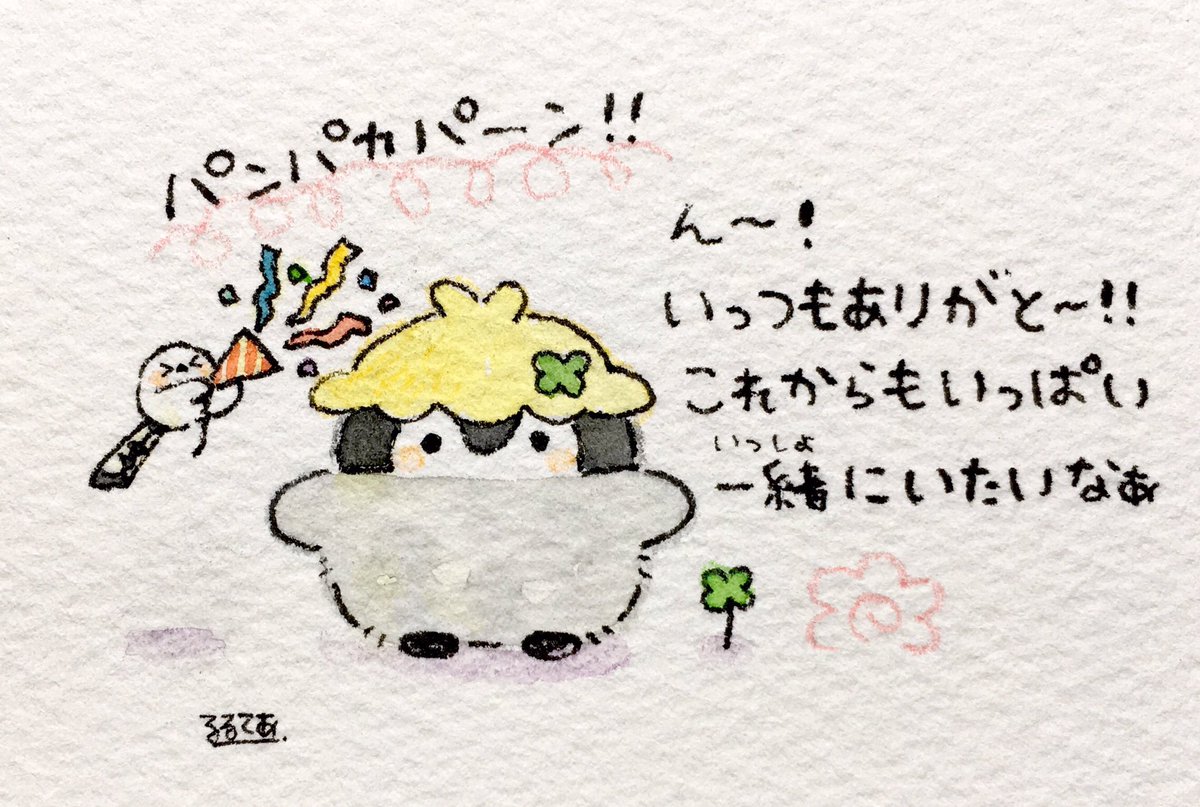 パンパカパーン!!
ん〜!
いっつもありがと〜!!
これからもいっぱい
いっしょ
一緒にいたいなぁ
るるてあ.